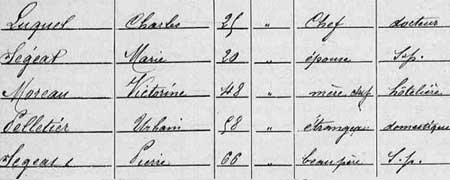 Luquel Charles 25 " Chef docteur
Ségeat Marie 20 " épouse S.p.
Moreau Victorine 48 " mère chef hôtelière
Pelletier Urbain 58 " étranger domestique
Segeat Pierre 66 " beau père S.p.